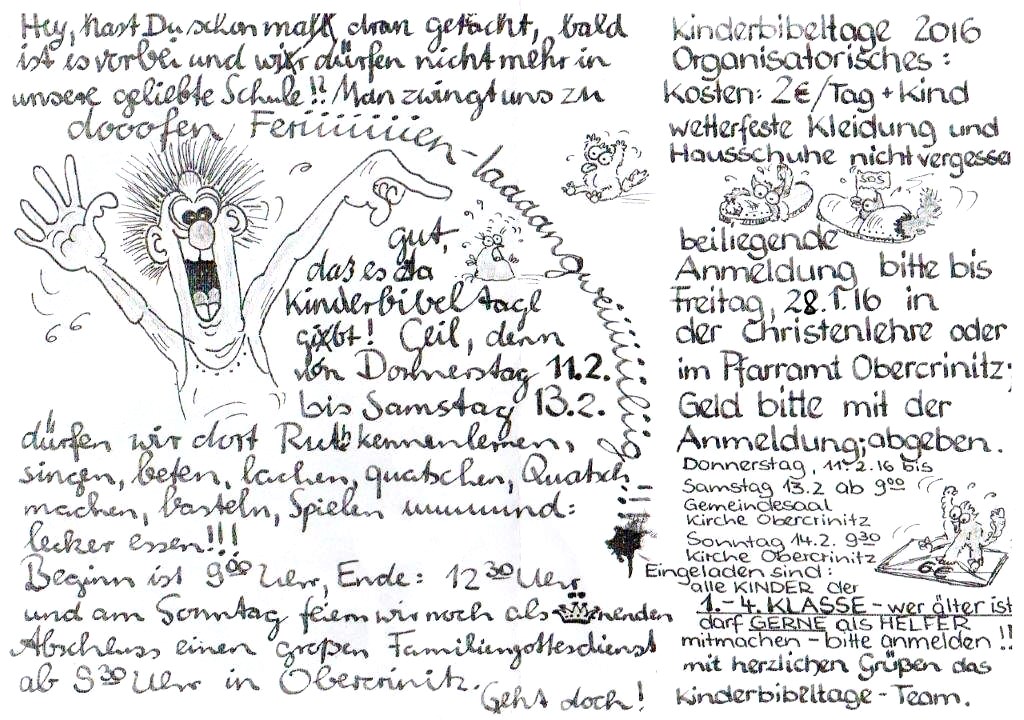 Hey, hast Du schon mal dran gedacht, bald
ist es vorbei und wir dürfen nicht mehr in
unsere geliebte Schule!! Man zwingt uns zu
dooofen Feriiiiiiien-laaaangweiiiiiiiig!!!
gut,
das es da
Kinderbibeltage
gibt! Geil, denn
von Donnerstag 11.2.
bis Samstag 13.2.
dürfen wir dort Ruth kennenlernen,
singen, beten, lachen, quatschen, Quatsch
machen, basteln, Spielen uuuuuund:
lecker essen!!!
Beginn ist 9⁰⁰ Uhr, Ende: 12³⁰ Uhr
und am Sonntag feiern wir noch als nenden
Abschluss einen großen Familiengottesdienst
ab 9³⁰ Uhr in Obercrinitz.
Geht doch!
Kinderbibeltage 2016
Organisatorisches:
Kosten: 2€/Tag + Kind
wetterfeste Kleidung und
Hausschuhe nicht vergessen
SOS
beiliegende
Anmeldung bitte bis
Freitag, 28.1.16 in
der Christenlehre oder
im Pfarramt Obercrinitz;
Geld bitte mit der
Anmeldung; abgeben.
Donnerstag, 11.2.16 bis
Samstag 13.2 ab 9⁰⁰
Gemeindesaal
Kirche Obercrinitz
Sonntag 14.2. 9³⁰
Kirche Obercrinitz
6€
Eingeladen sind:
alle KINDER der
1.- 4. KLASSE - wer älter ist
darf GERNE als HELFER
mitmachen - bitte anmelden!!
mit herzlichen Grüßen das
Kinderbibeltage-Team.